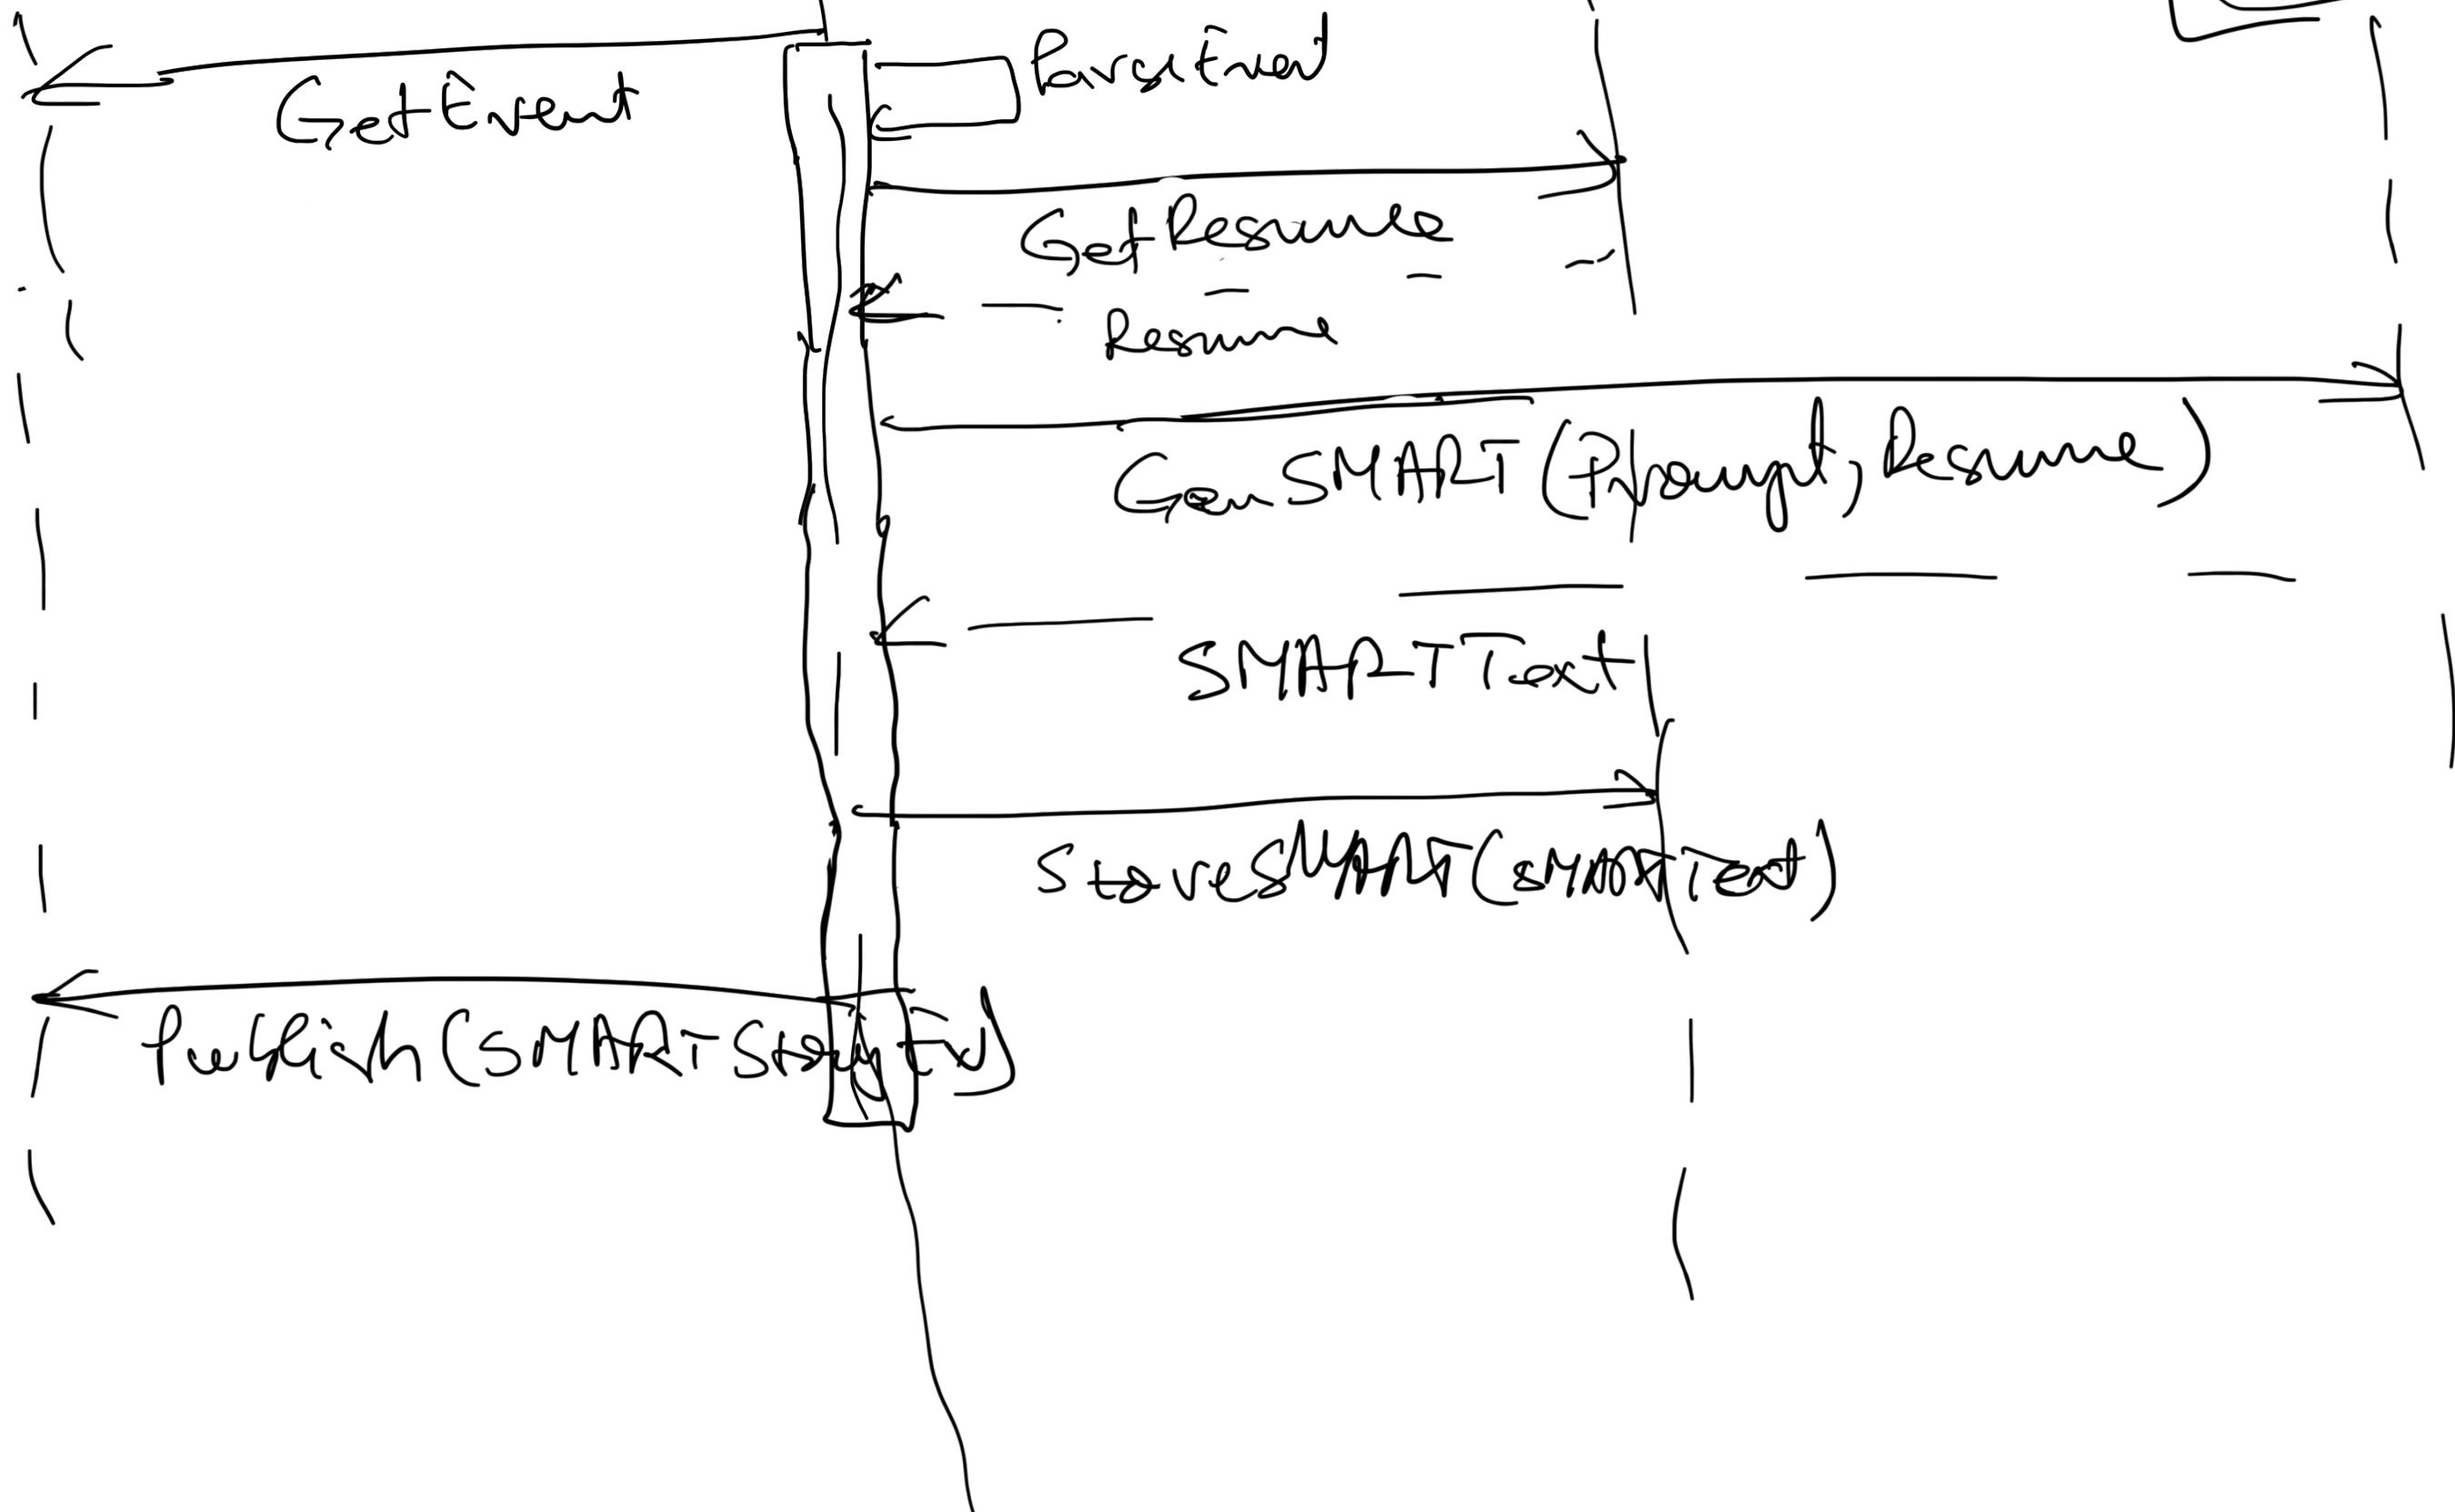 ParseEvent
GetEvent
GetResume
Resume
GenSMART(Prompt, Resume)
SMARTText
StoreSMART(SMARTText)
Publish(SMARTStoreEvent)